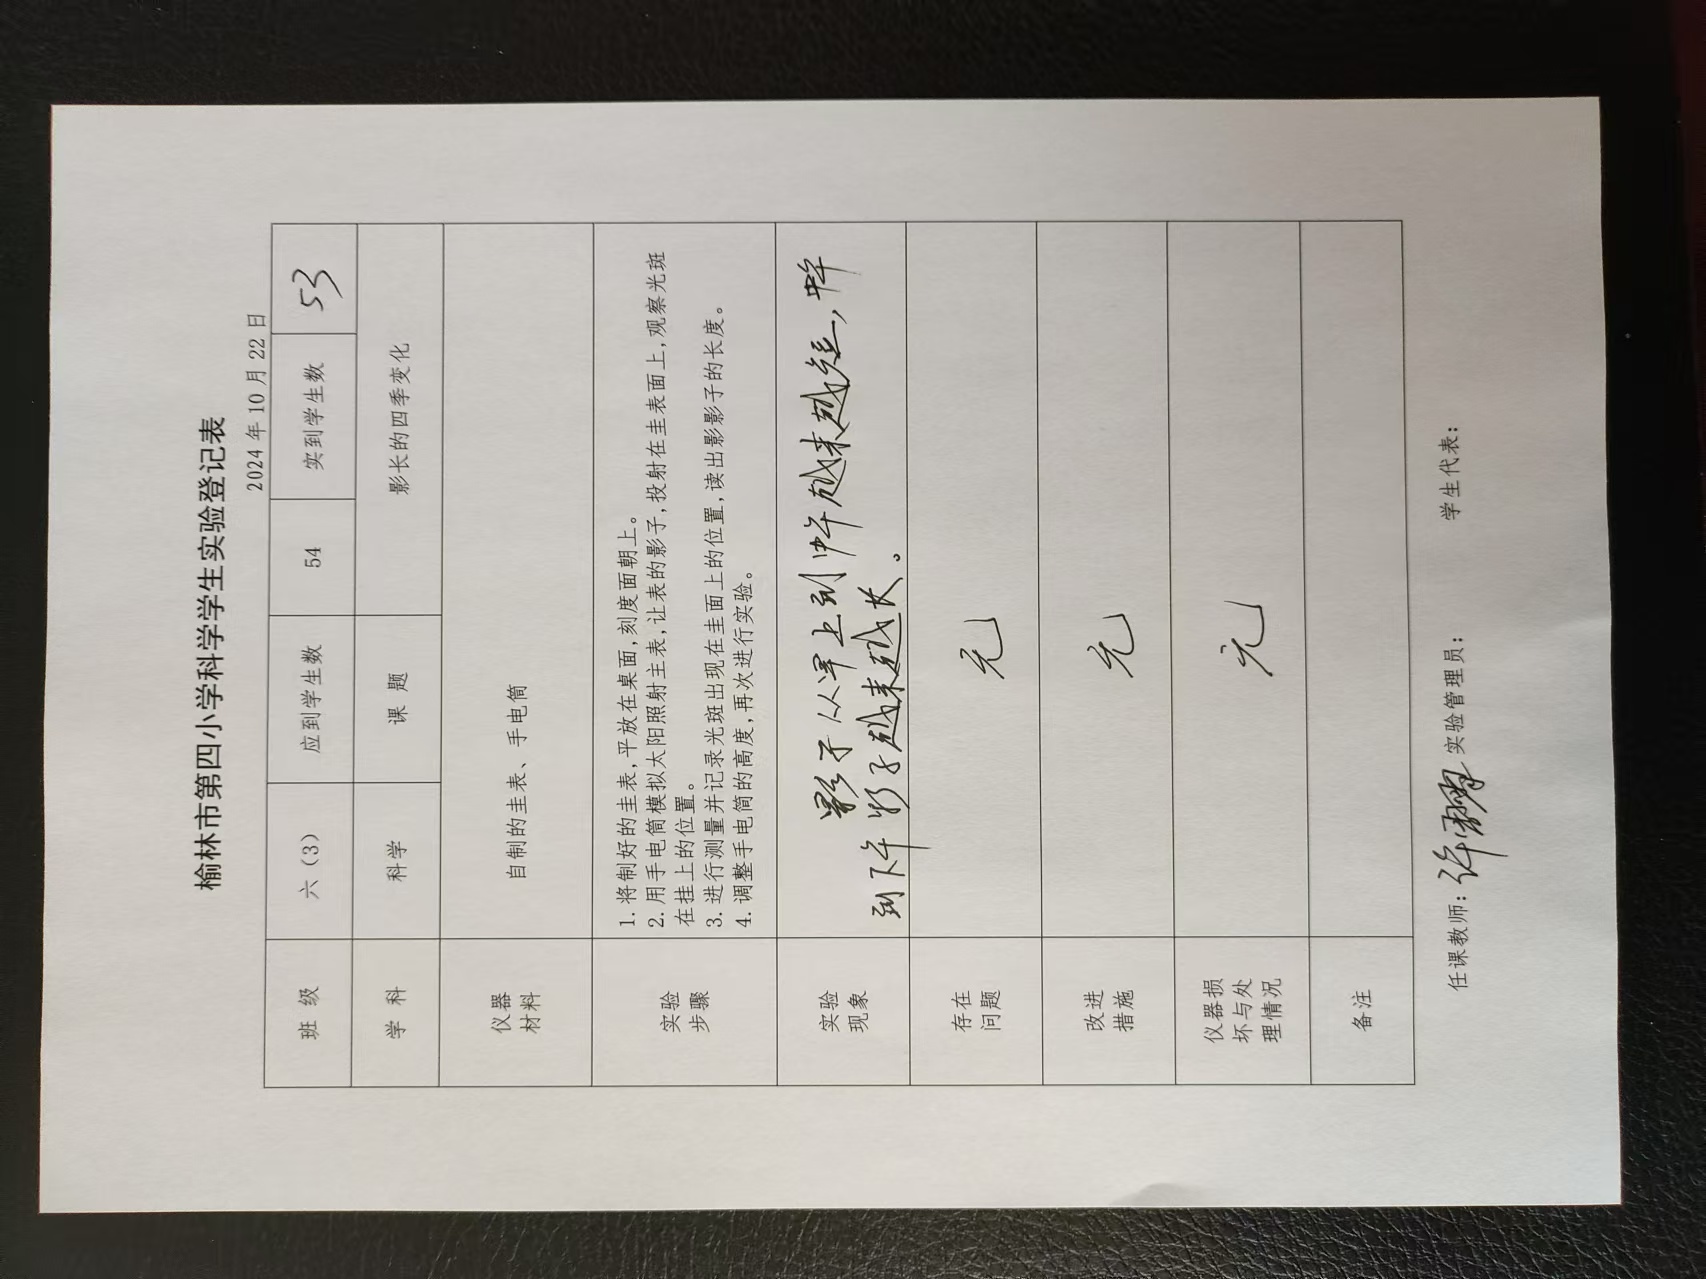 榆林市第四小学科学学生实验登记表
2024 年 10 月 22 日
班 级 六（3） 应到学生数 54 实到学生数 53
学 科 科学 课 题 影长的四季变化
仪器
材料
自制的圭表、手电筒
实验
步骤
1. 将制好的圭表,平放在桌面,刻度面朝上。
2. 用手电筒模拟太阳照射主表,让表的影子,投射在圭表面上,观察光斑
在挂上的位置。
3. 进行测量并记录光斑出现在圭面上的位置,读出影影子的长度。
4. 调整手电筒的高度,再次进行实验。
实验
现象
影子从早上到中午越来越短，中午
到下午影子越来越长。
存在
问题
无
改进
措施
无
仪器损
坏与处
理情况
无
备注
任课教师: 实验管理员: 学生代表: